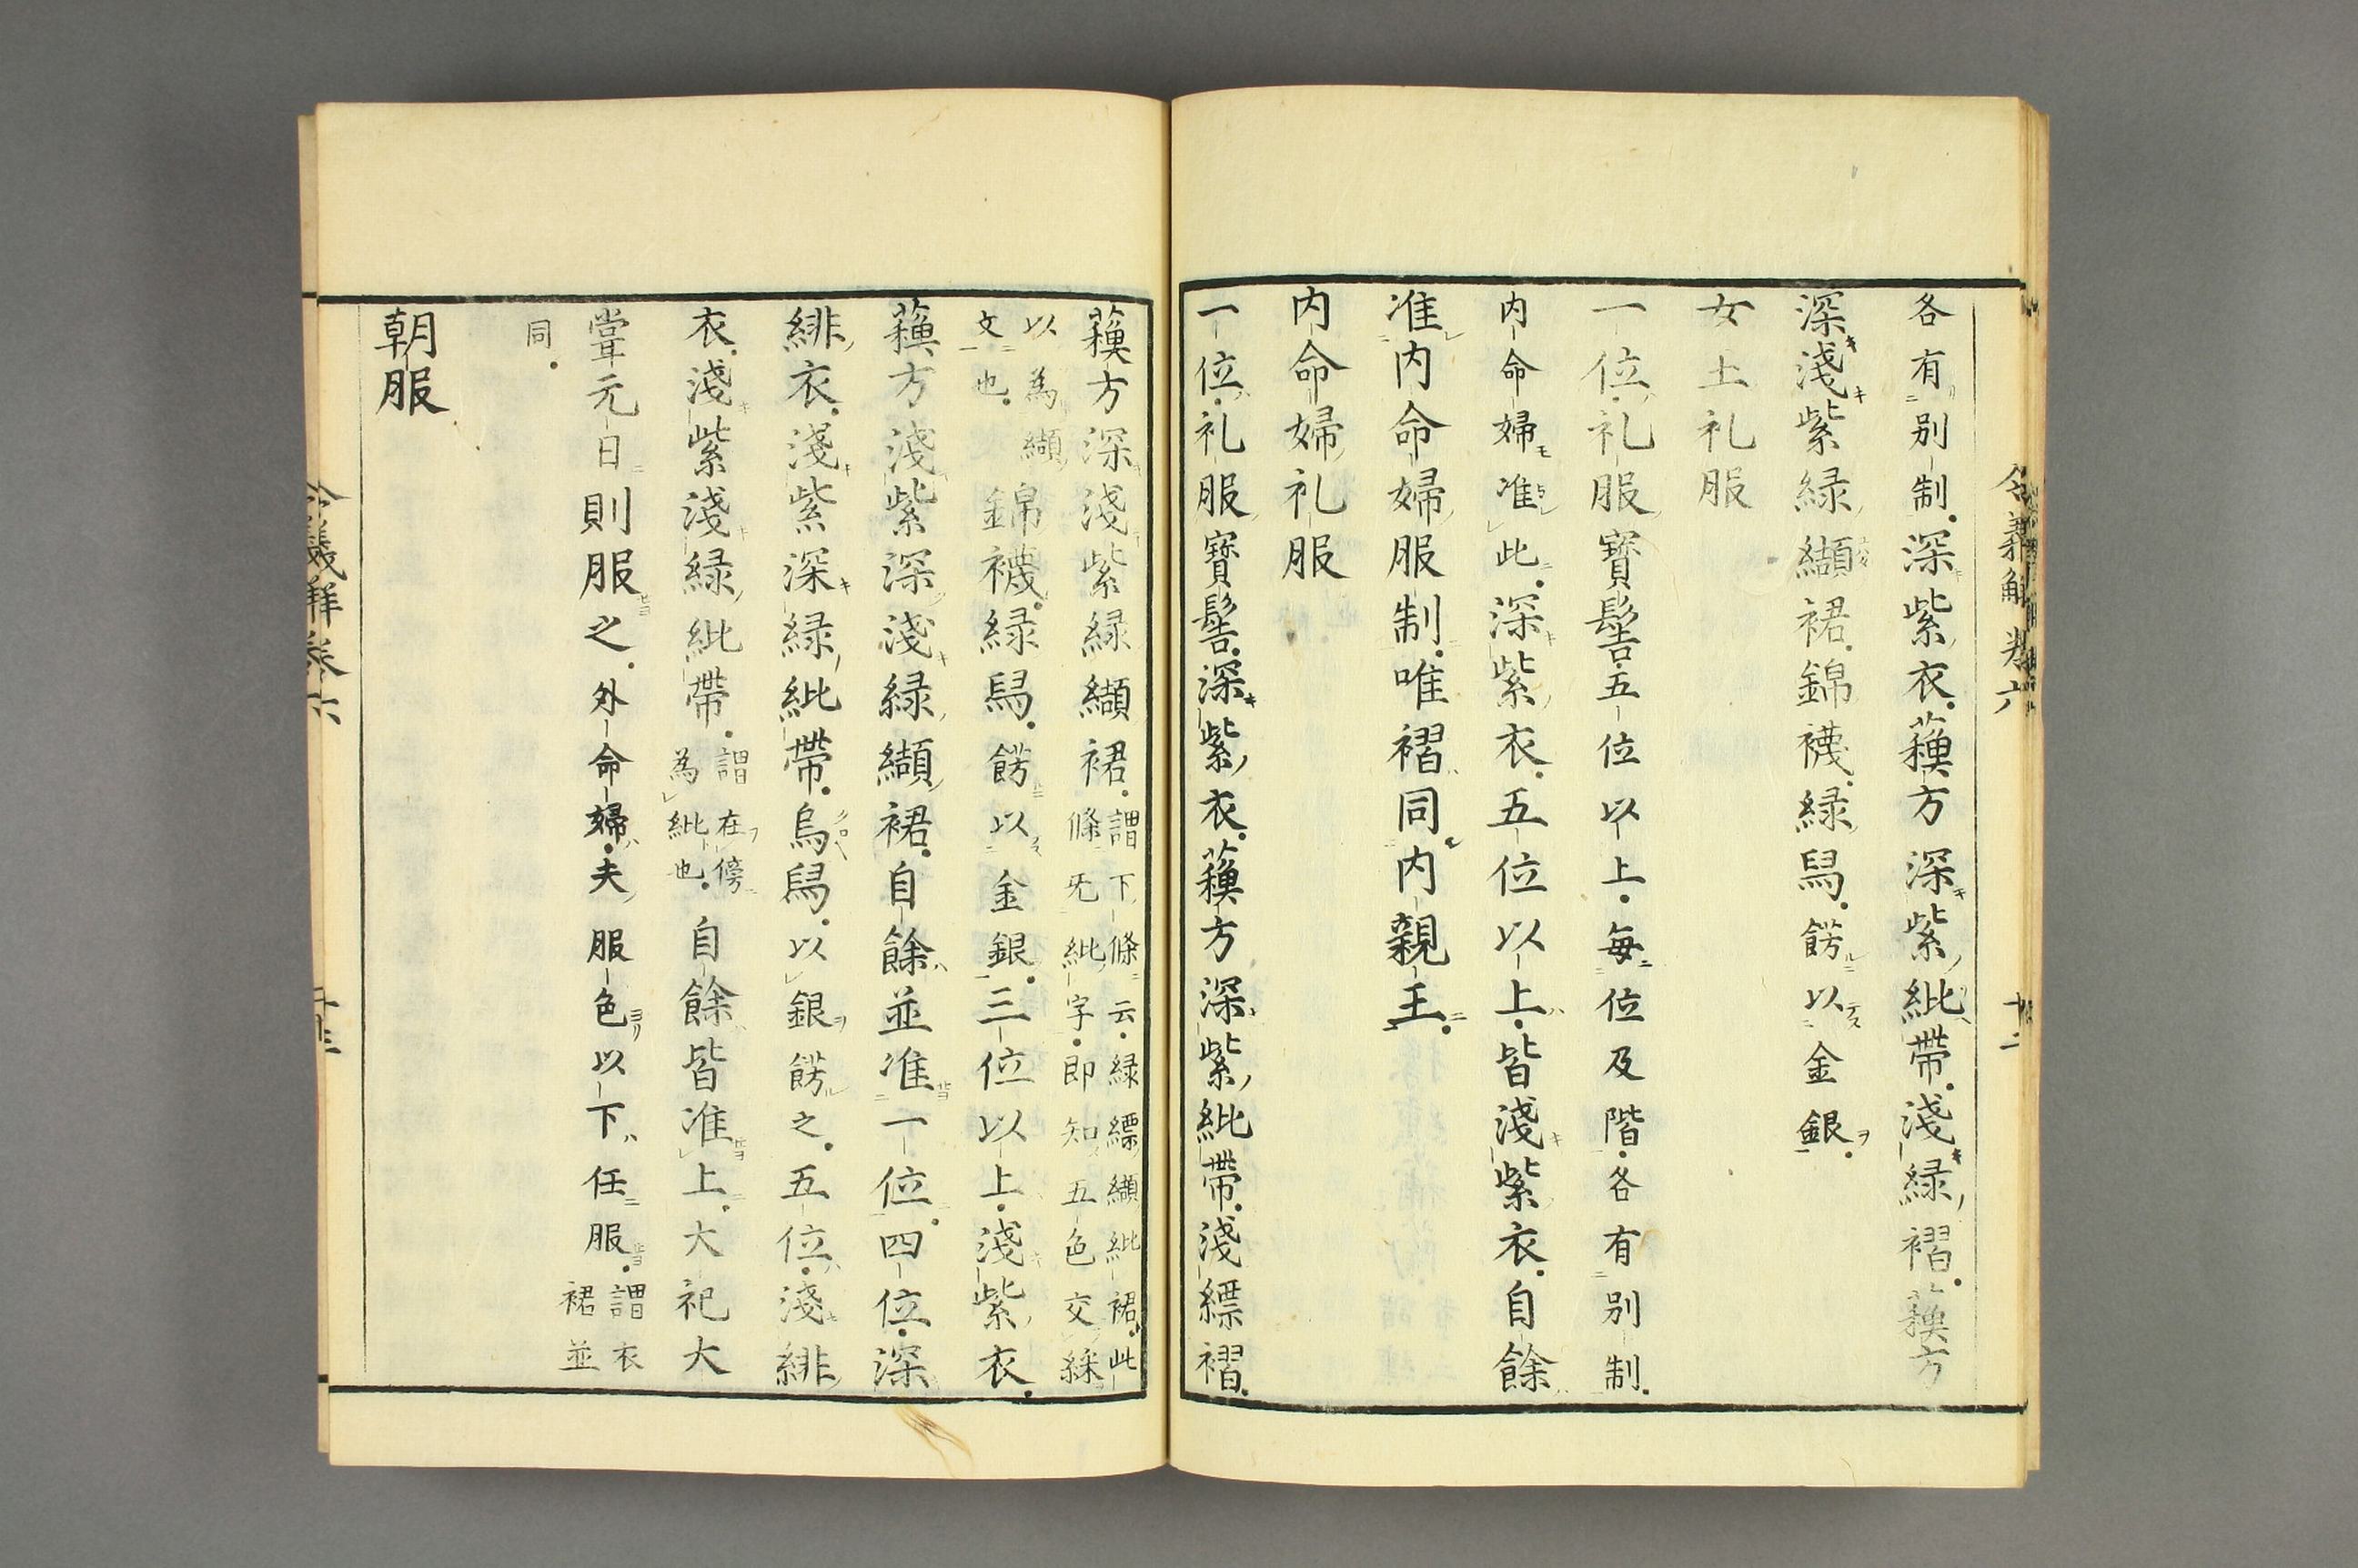 各有別制深紫衣蘓方深紫紕帶淺緑褶蘓方
深淺紫緑纈裙錦襪緑舄餝以金銀
女王礼服
一位礼服寶髻五位以上毎位及階各有別制
内命婦准此深紫衣五位以上皆淺紫衣自餘
准内命婦服制唯褶同内親王
内命婦礼服
一位礼服寶髻深紫衣蘓方深紫紕帶淺縹褶
蘓方深淺紫緑纈裙謂下條云緑縹纈紕裙此
條旡紕字即知五色交綵
以為纈
文也錦襪緑舄餝以金銀三位以上淺紫衣
蘓方淺紫深淺緑纈裙自餘並准一位四位深
緋衣淺紫深緑紕帶烏舄以銀餝之五位淺緋
衣淺紫淺緑紕帶謂在傍
為紕也自餘皆准上大祀大
甞元日則服之外命婦夫服色以下任服謂衣
裙並
同
朝服
令義解卷六